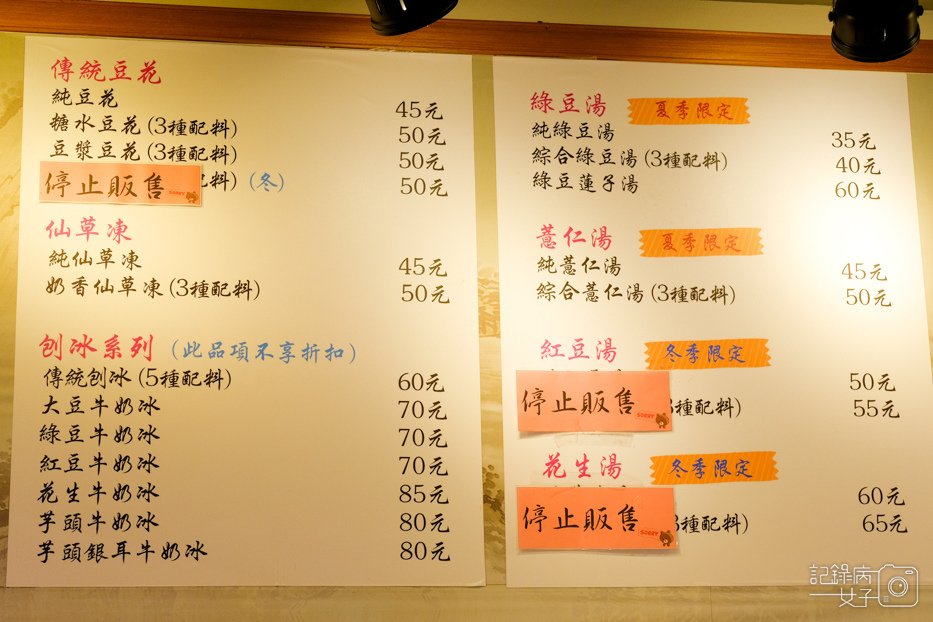 傳統豆花
純豆花 45元
糖水豆花(3種配料) 50元
豆漿豆花(3種配料) 50元
停止販售 SORRY 配料)(冬) 50元
仙草凍
純仙草凍 45元
奶香仙草凍(3種配料) 50元
刨冰系列(此品項不享折扣)
傳統刨冰(5種配料) 60元
大豆牛奶冰 70元
綠豆牛奶冰 70元
紅豆牛奶冰 70元
花生牛奶冰 85元
芋頭牛奶冰 80元
芋頭銀耳牛奶冰 80元
綠豆湯 夏季限定
純綠豆湯 35元
綜合綠豆湯(3種配料) 40元
綠豆蓮子湯 60元
薏仁湯 夏季限定
純薏仁湯 45元
綜合薏仁湯(3種配料) 50元
紅豆湯 冬季限定
50元
停止販售 SORRY 3種配料) 55元
花生湯 冬季限定
60元
停止販售 SORRY 3種配料) 65元
記錄病
女子